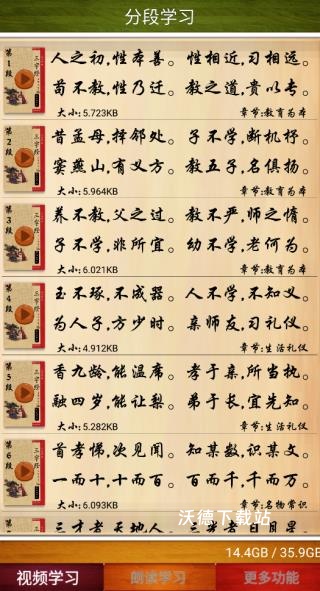 分段学习
第1段
三字经
人之初,性本善。 性相近,习相远。
苟不教,性乃迁。 教之道,贵以专。
大小:5.723KB 章节:教育为本
第2段
三字经
昔孟母,择邻处。 子不学,断机杼。
窦燕山,有义方。 教五子,名俱扬。
大小:5.964KB 章节:教育为本
第3段
三字经
养不教,父之过。 教不严,师之惰。
子不学,非所宜。 幼不学,老何为。
大小:6.021KB 章节:教育为本
第4段
三字经
玉不琢,不成器。 人不学,不知义。
为人子,方少时。 亲师友,习礼仪。
大小:4.912KB 章节:生活礼仪
第5段
三字经
香九龄,能温席。 孝于亲,所当执。
融四岁,能让梨。 弟于长,宜先知。
大小:5.282KB 章节:生活礼仪
第6段
三字经
首孝悌,次见闻。 知某数,识某文。
一而十,十而百。 百而千,千而万。
大小:6.093KB 章节:名物常识
三才者,天地人。 三光者,日月星。
沃德下载站
14.4GB / 35.9GB
视频学习 朗读学习 更多功能